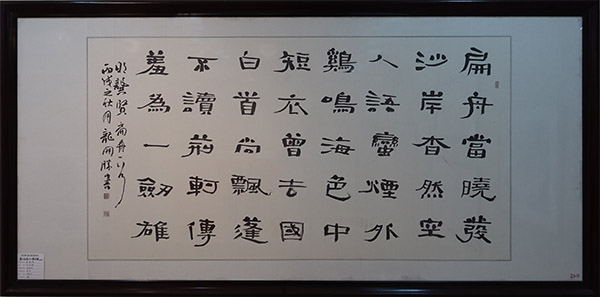 扁舟當曉發
沙岸杳然空
人語蠻煙外
鷄鳴海色中
短衣曾去國
白首尚飄蓬
不讀荊軻傳
羞為一劍雄
明龔賢扁舟一首
丙戌之月龍開勝書